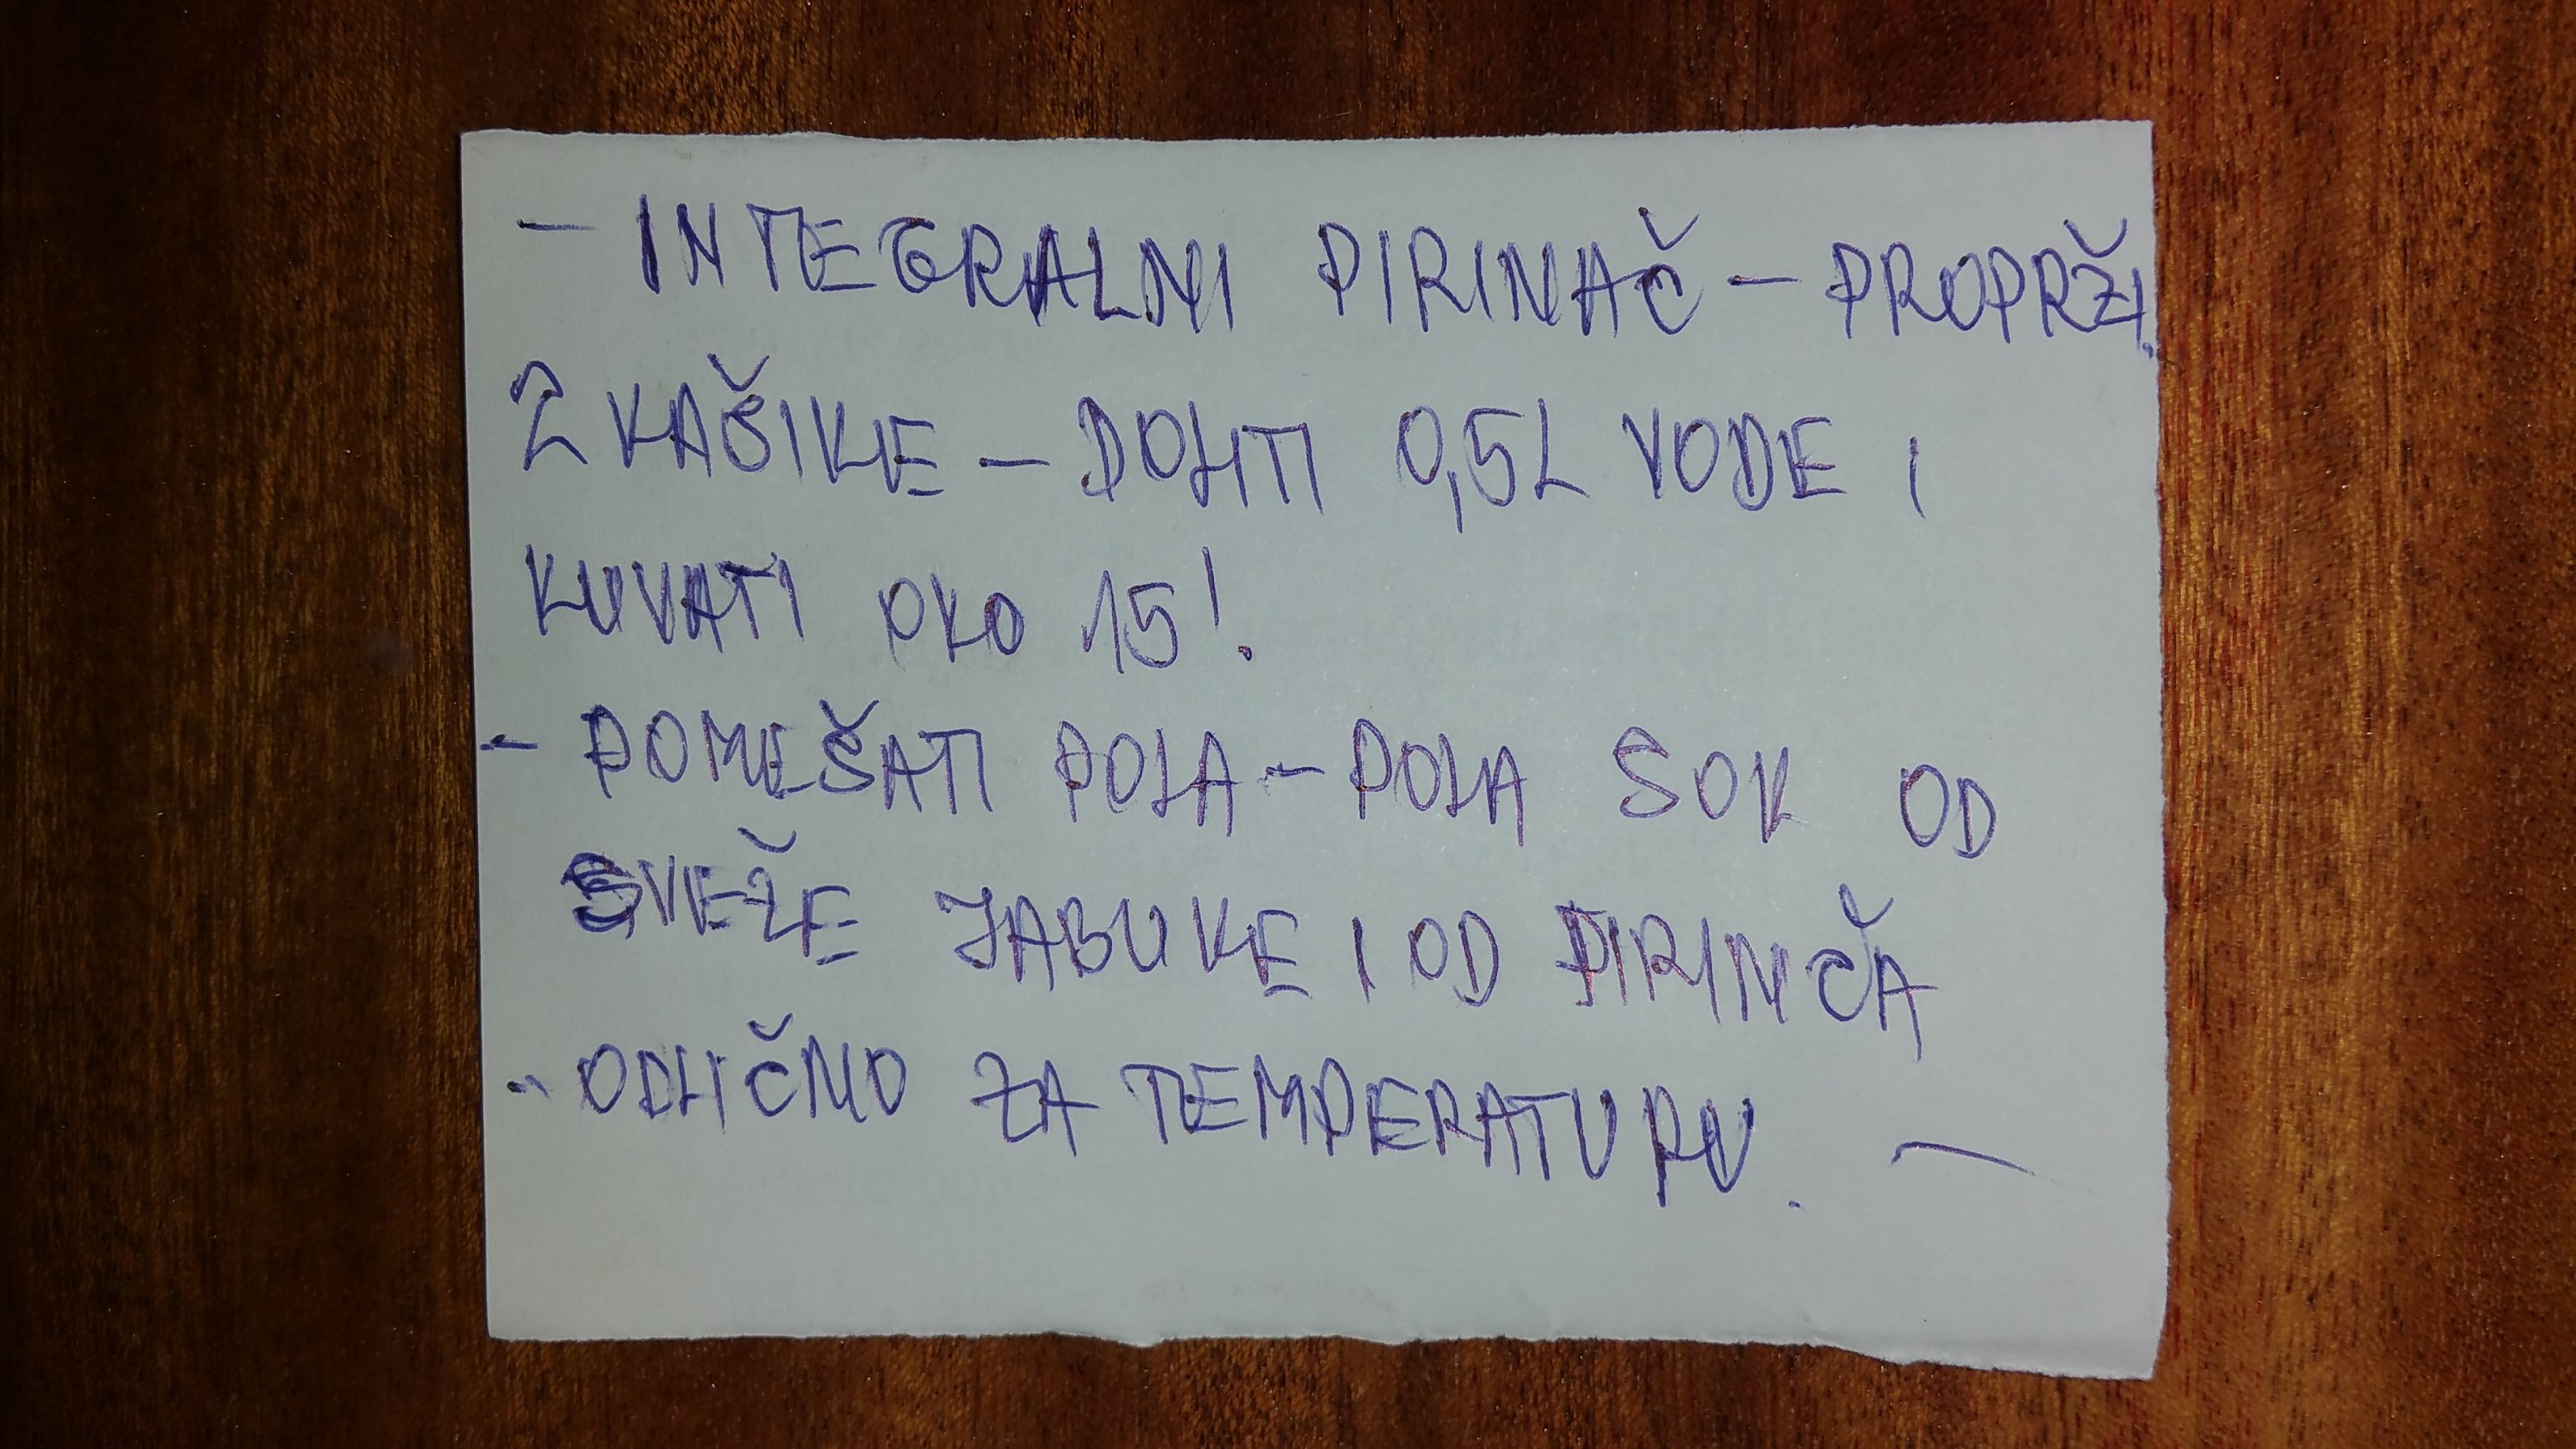 - INTEGRALNI PIRINAČ - PROPRŽI.
2 KAŠIKE - DOLITI 0,5L VODE I
KUVATI OKO 15!.
- POMEŠATI POLA - POLA SOK OD
SVEŽE JABUKE I OD PIRINČA
- ODLIČNO ZA TEMPERATURU. -